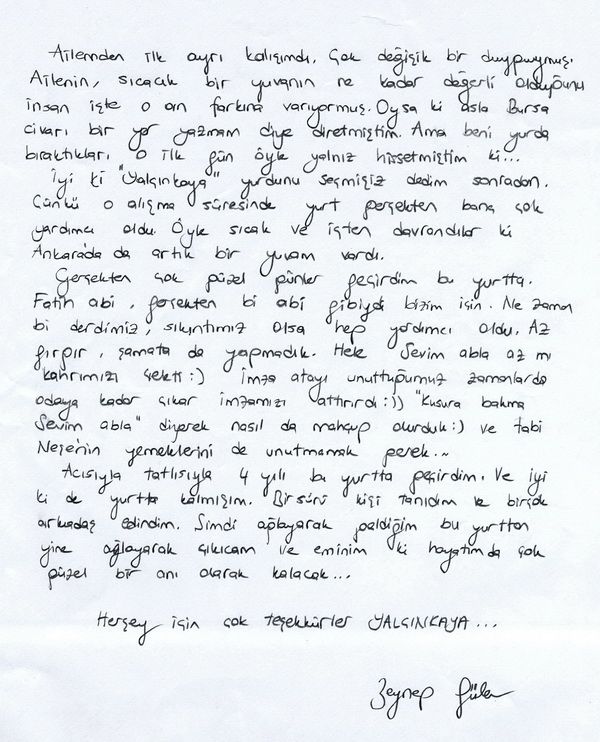 Ailemden ilk ayrı kalışımdı. Çok değişik bir duyguymuş.
Ailenin, sıcacık bir yuvanın ne kadar değerli olduğunu
insan işte o an farkına varıyormuş. Oysa ki asla Bursa
civarı bir yer yazmam diye diretmiştim. Ama beni yurda
bıraktıkları o ilk gün öyle yalnız hissetmiştim ki...
İyi ki "Yalçınkaya" yurdunu seçmişiz dedim sonradan.
Çünkü o alışma süresinde yurt gerçekten bana çok
yardımcı oldu. Öyle sıcak ve içten davrandılar ki
Ankara'da da artık bir yuvam vardı.
Gerçekten çok güzel günler geçirdim bu yurtta.
Fatih abi, gerçekten bi abi gibiydi bizim için. Ne zaman
bi derdimiz, sıkıntımız olsa hep yardımcı oldu. Az
gırgır, şamata da yapmadık. Hele Sevim abla az mı
kahrımızı çekti :) İmza atayı unuttuğumuz zamanlarda
odaya kadar çıkar imzamızı attırırdı :)) "Kusura bakma
Sevim abla" diyerek nasıl da mahçup olurduk :) ve tabi
Neşe'nin yemeklerini de unutmamak gerek...
Acısıyla tatlısıyla 4 yılı bu yurtta geçirdim. Ve iyi
ki de yurtta kalmışım. Bir sürü kişi tanıdım ve birçok
arkadaş edindim. Şimdi ağlayarak geldiğim bu yurttan
yine ağlayarak çıkıcam ve eminim ki hayatımda çok
güzel bir anı olarak kalacak...
Herşey için çok teşekkürler YALÇINKAYA...
Zeynep Güler